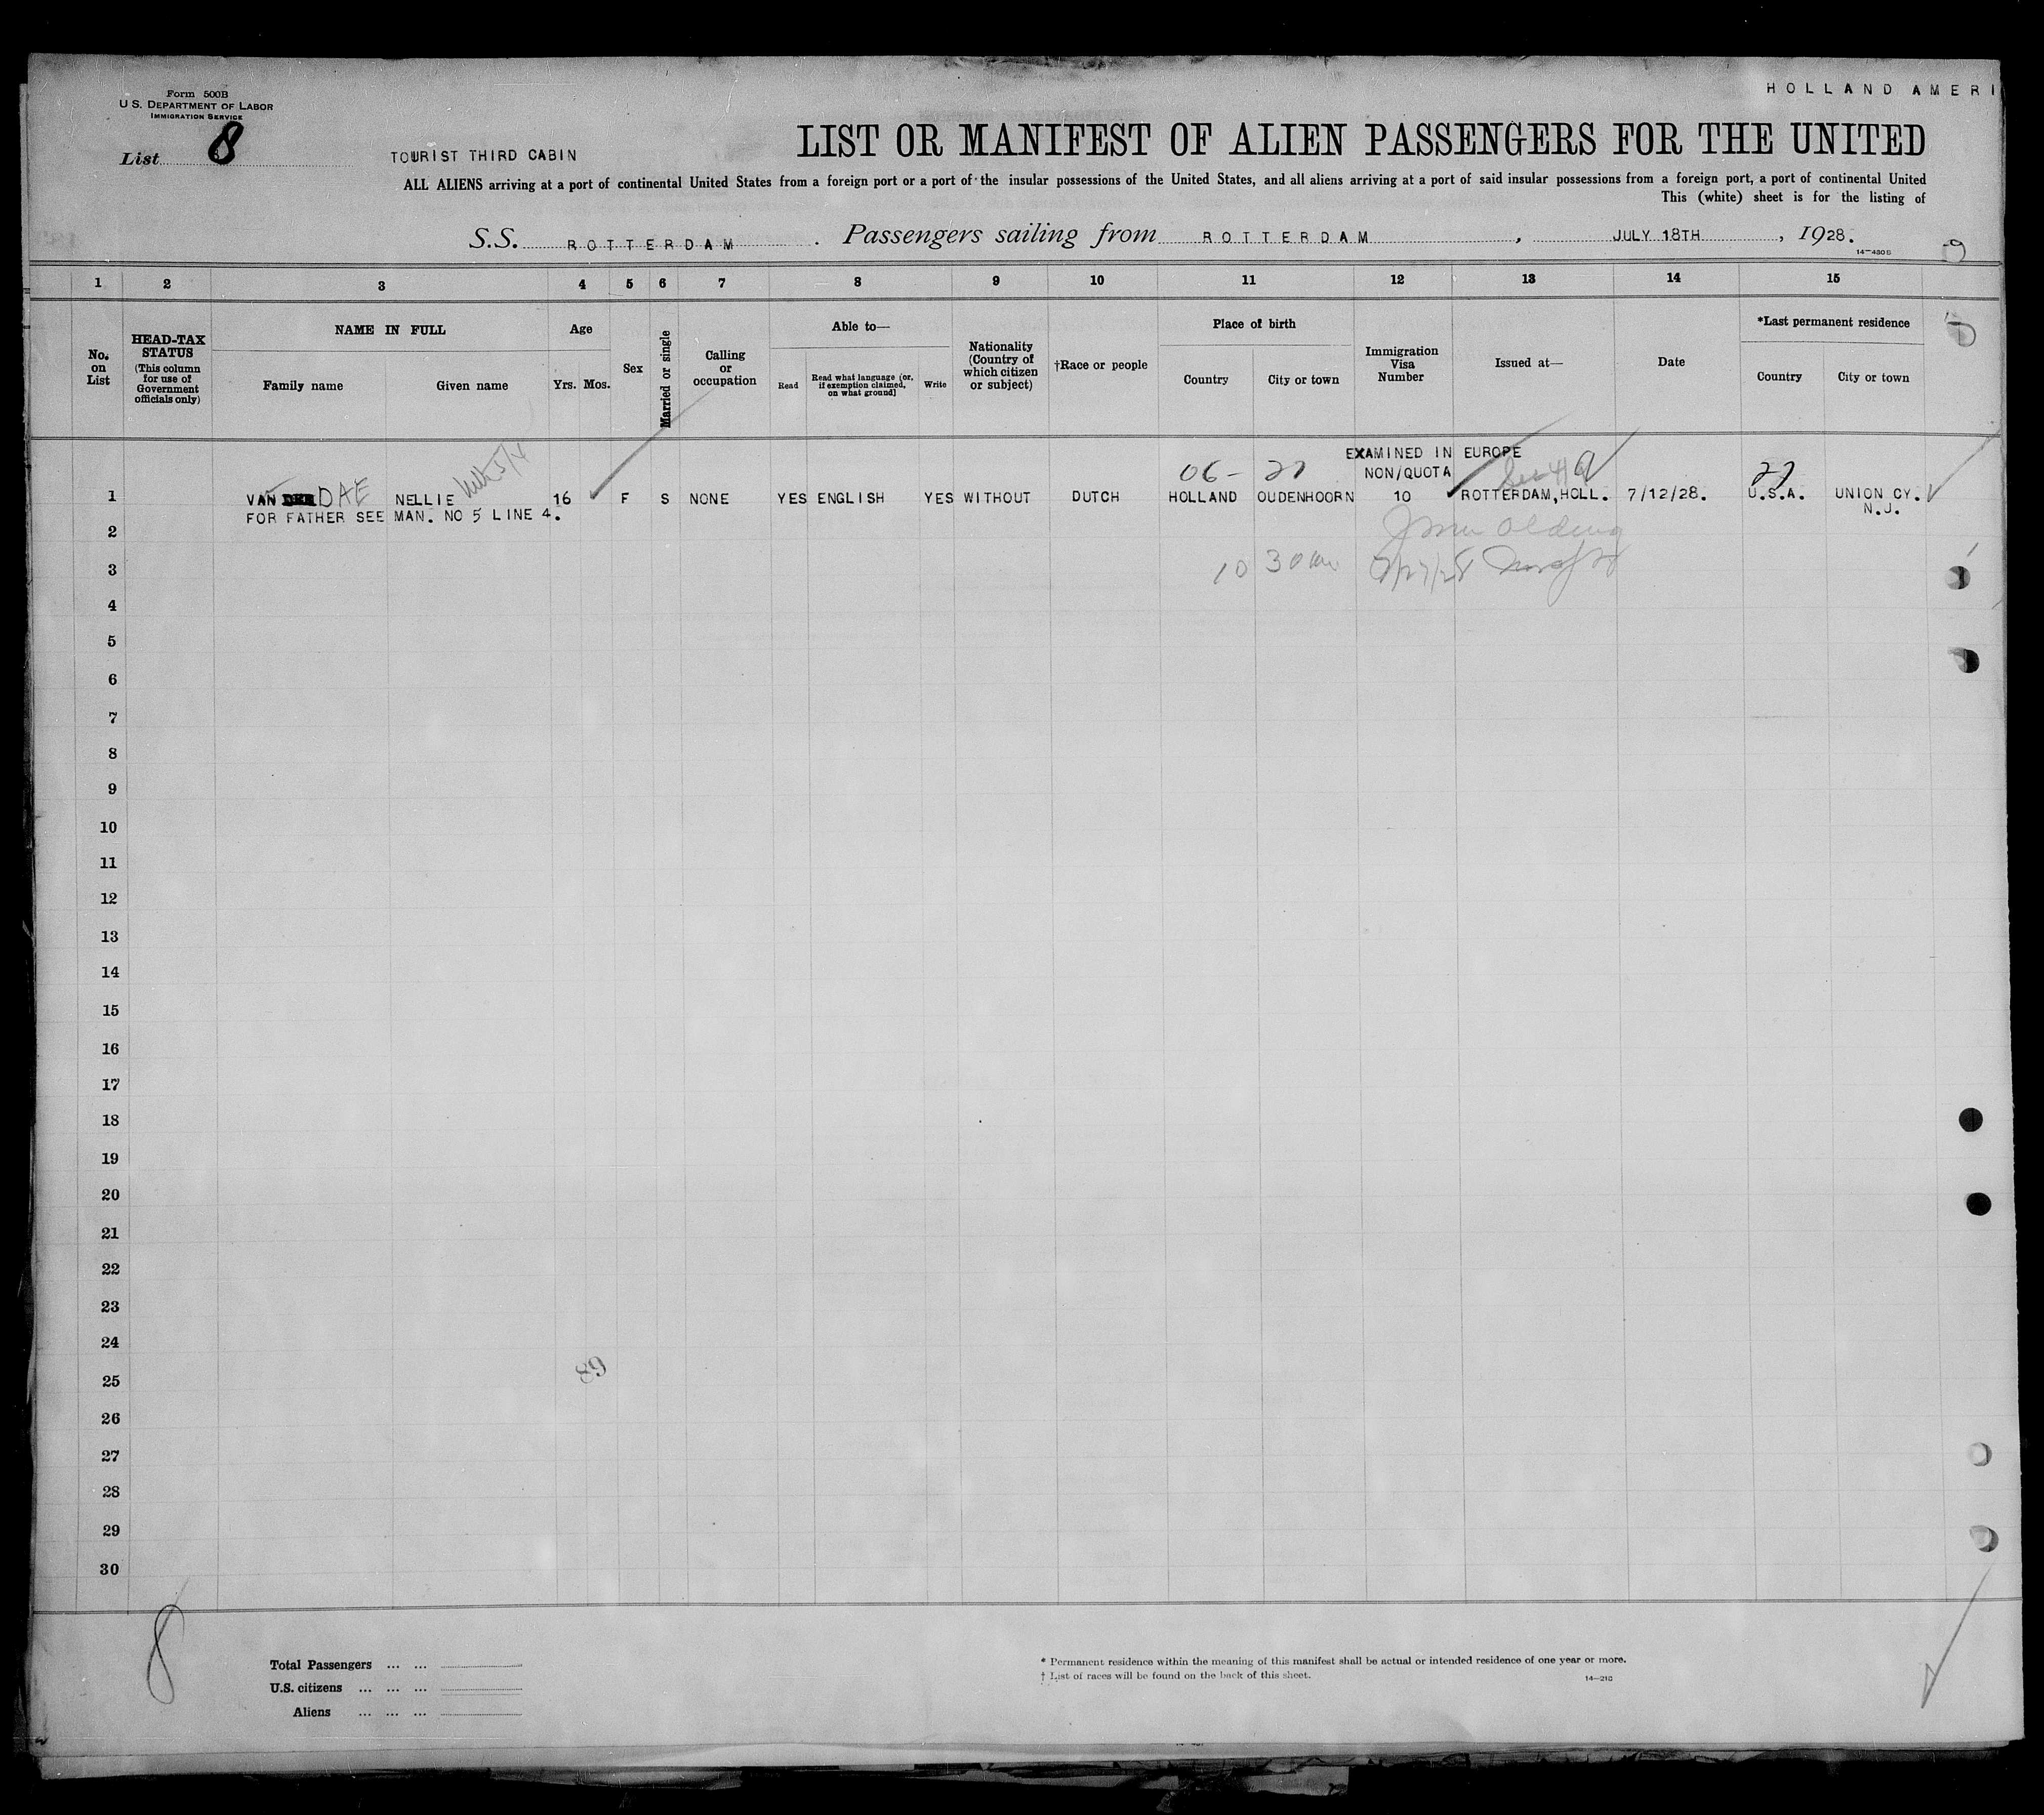 HOLLAND AMERI
Form 500B
U. S. DEPARTMENT OF LABOR
IMMIGRATION SERVICE
List 8
TOURIST THIRD CABIN
LIST OR MANIFEST OF ALIEN PASSENGERS FOR THE UNITED
ALL ALIENS arriving at a port of continental United States from a foreign port or a port of the insular possessions of the United States, and all aliens arriving at a port of said insular possessions from a foreign port, a port of continental United
This (white) sheet is for the listing of
S.S. ROTTERDAM. Passengers sailing from ROTTERDAM, JULY 18TH, 1928.
14—430B
1 2 3 4 5 6 7 8 9 10 11 12 13 14 15
No. on List
HEAD-TAX STATUS (This column for use of Government officials only)
NAME IN FULL
Family name Given name
Age
Yrs. Mos.
Sex
Married or single
Calling or occupation
Able to—
Read Read what language (or, if exemption claimed, on what ground) Write
Nationality (Country of which citizen or subject)
†Race or people
Place of birth
Country City or town
Immigration Visa Number
Issued at—
Date
*Last permanent residence
Country City or town
EXAMINED IN EUROPE
06- 27 NON/QUOTA 27
1 VAN DER DAE NELLIE 16 F S NONE YES ENGLISH YES WITHOUT DUTCH HOLLAND OUDENHOORN 10 ROTTERDAM, HOLL. 7/12/28. U.S.A. UNION CY.
N.J.
FOR FATHER SEE MAN. NO 5 LINE 4.
2
3 10 30 am 7/27/28
4
5
6
7
8
9
10
11
12
13
14
15
16
17
18
19
20
21
22
23
24
89
25
26
27
28
29
30
8
Total Passengers ... ...
U.S. citizens ... ... ...
Aliens ... ... ...
* Permanent residence within the meaning of this manifest shall be actual or intended residence of one year or more.
† List of races will be found on the back of this sheet.
14—210